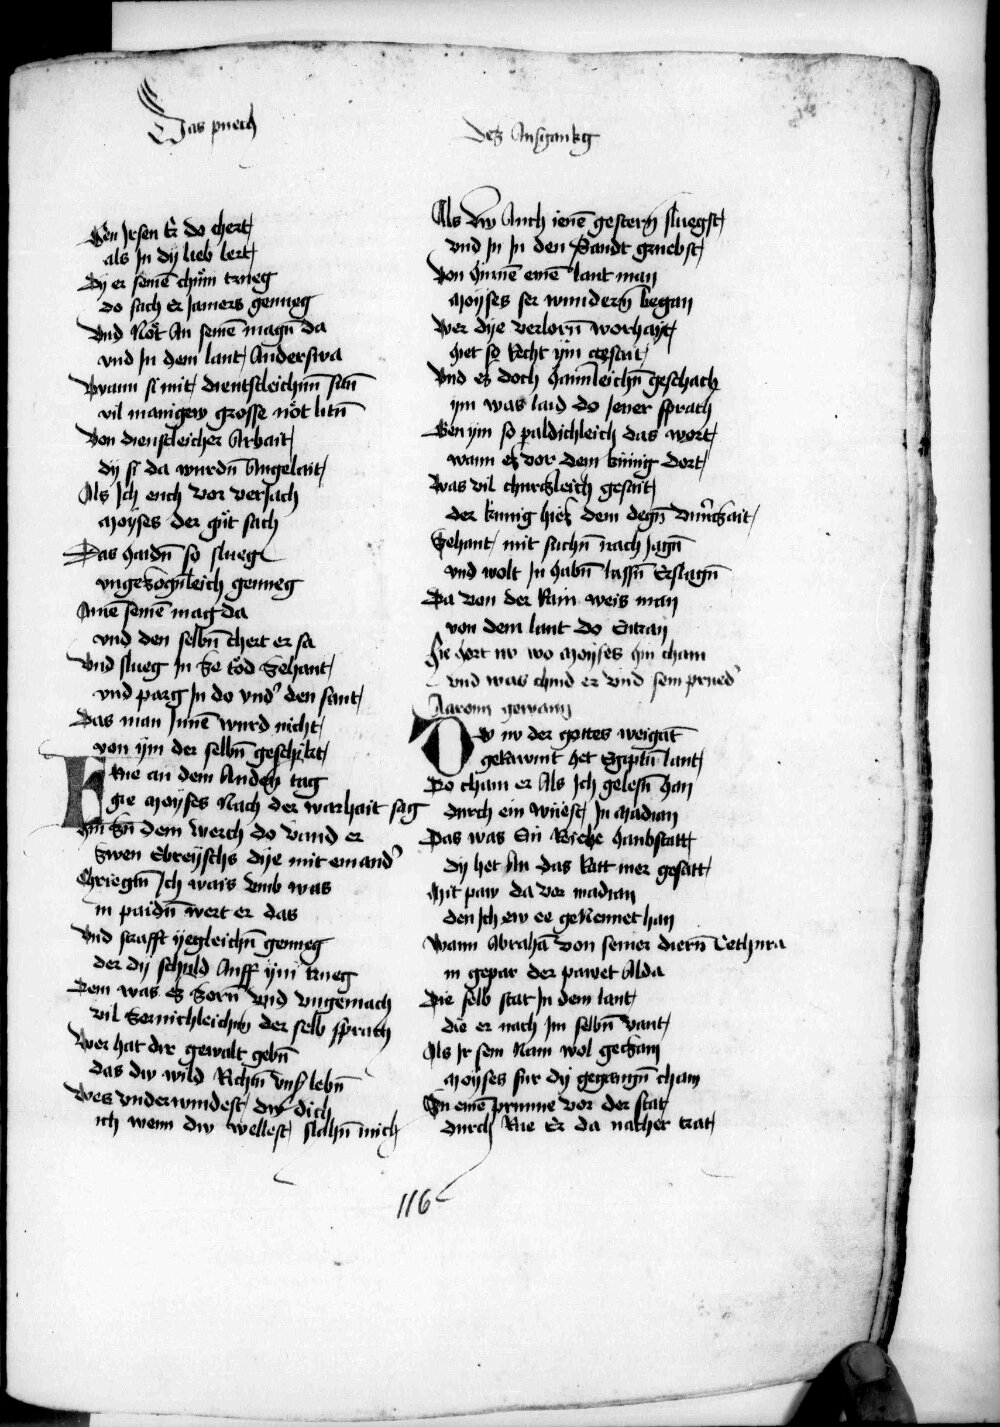 Das puech
Des Ausgankg
Gen Jrsen Er do chert
als Jn dy lieb lert
Dy er seinē chünn trueg
do sach Er Jamers genueg
Vnd Nöt An seinē magn̄ da
vnd Jn dem lant Anderswa
Wann si mit dienstleichn̄ sitn̄
vil manigew grosse nöt litn̄
Von dienstleicher Arbait
dy si da wurdn̄ Angelait
Als Jch euch vor veriach
Moyses der güt sach
Das haidn̄ so slueg
vngezogn̄leich genueg
Ainē seinē mag da
vnd den selbn̄ chert er sa
Vnd slueg Jn ze töd zehant
vnd parg Jn do vnd' den sant
Das man Jnnē wurd nicht
von ym der selbn̄ geschicht
Frue an dem Andern̄ tag
gie Moyses Nach der warhait sag
hin zu dem werch do vand er
Zwen Ebreyschs dye mit einand'
Chriegtn̄ Jch wais vmb was
in paidn̄ wert er das
Vnd strafft yegleichn̄ genueg
der dy schuld Auff ym trueg
Dem was es zorn̄ vnd vngemach
vil zornichleichn̄ der selb sprach
Wer hat dir gewalt gebn̄
das dw wild Richtn̄ vnser lebn̄
Wes vnderwindest dw dich
ich wenn dw wellest slahn̄ mich
Als dw Auch ienē gestern̄ sluegst
vnd Jn Jn den Sandt gruebst
Von hinnē einē lant man
Moyses ser wundern̄ began
Wer dye verlorn̄ worhayt
hiet so Recht ym gesait
Vnd es doch haimleichn̄ geschach
ym was laid do Jener sprach
Gen ym so paldichleich das wort
wann es vor dem kunig dort
Was vil churczleich gesait
der kunig hies dem degn̄
Zehant mit suchn̄ nach Jagn̄
vnd wolt Jn habn̄ lassn̄ Erslagn̄
Da von der Rain weis man
von dem lant do Entran
Hie hort nv wo Moyses hin cham
vnd was chind er vnd sein prued'
Aaron gewann
Do nv der gottes weigāt
gerawmt het Egiptn̄ lant
Do cham er Als Jch gelesn̄ han
durch ein wüest Jn Madian
Das was Ein Reiche haubstatt
dy het An das Rott mer gesatt
Mit paw da vor madian
den Jch ew ee geNennet han
Wann Abrahā von seiner diern̄ Cethura
in gepar der pawet Alda
Die selb stat Jn dem lant
die er nach Jm selbn̄ nant
Als Jr sein Nam wol geczam
Moyses fur dy gegangn̄ cham
Zu einē prunne vor der stat
durch Rue Er da nacher trat
116